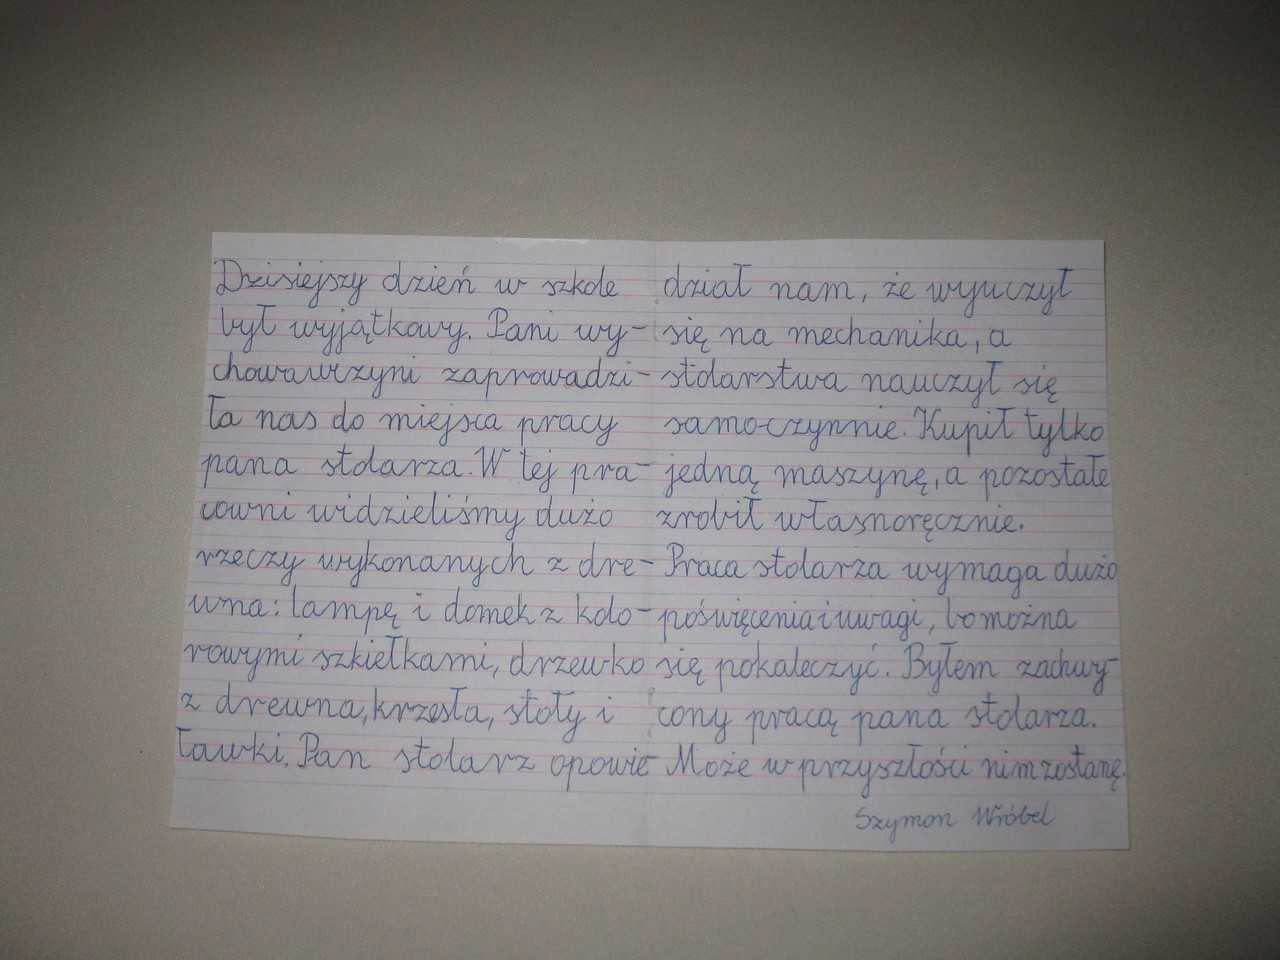 Dzisiejszy dzień w szkole
był wyjątkowy. Pani wy-
chowawczyni zaprowadzi-
ła nas do miejsca pracy
pana stolarza. W tej pra-
cowni widzieliśmy dużo
rzeczy wykonanych z dre-
wna: lampę i domek z kolo-
rowymi szkiełkami, drzewko
z drewna, krzesła, stoły i
ławki. Pan stolarz opowie-
dział nam, że wyuczył
się na mechanika, a
stolarstwa nauczył się
samoczynnie. Kupił tylko
jedną maszynę, a pozostałe
zrobił własnoręcznie.
Praca stolarza wymaga dużo
poświęcenia i uwagi, bo można
się pokaleczyć. Byłem zachwy-
cony pracą pana stolarza.
Może w przyszłości nim zostanę.
Szymon Wróbel